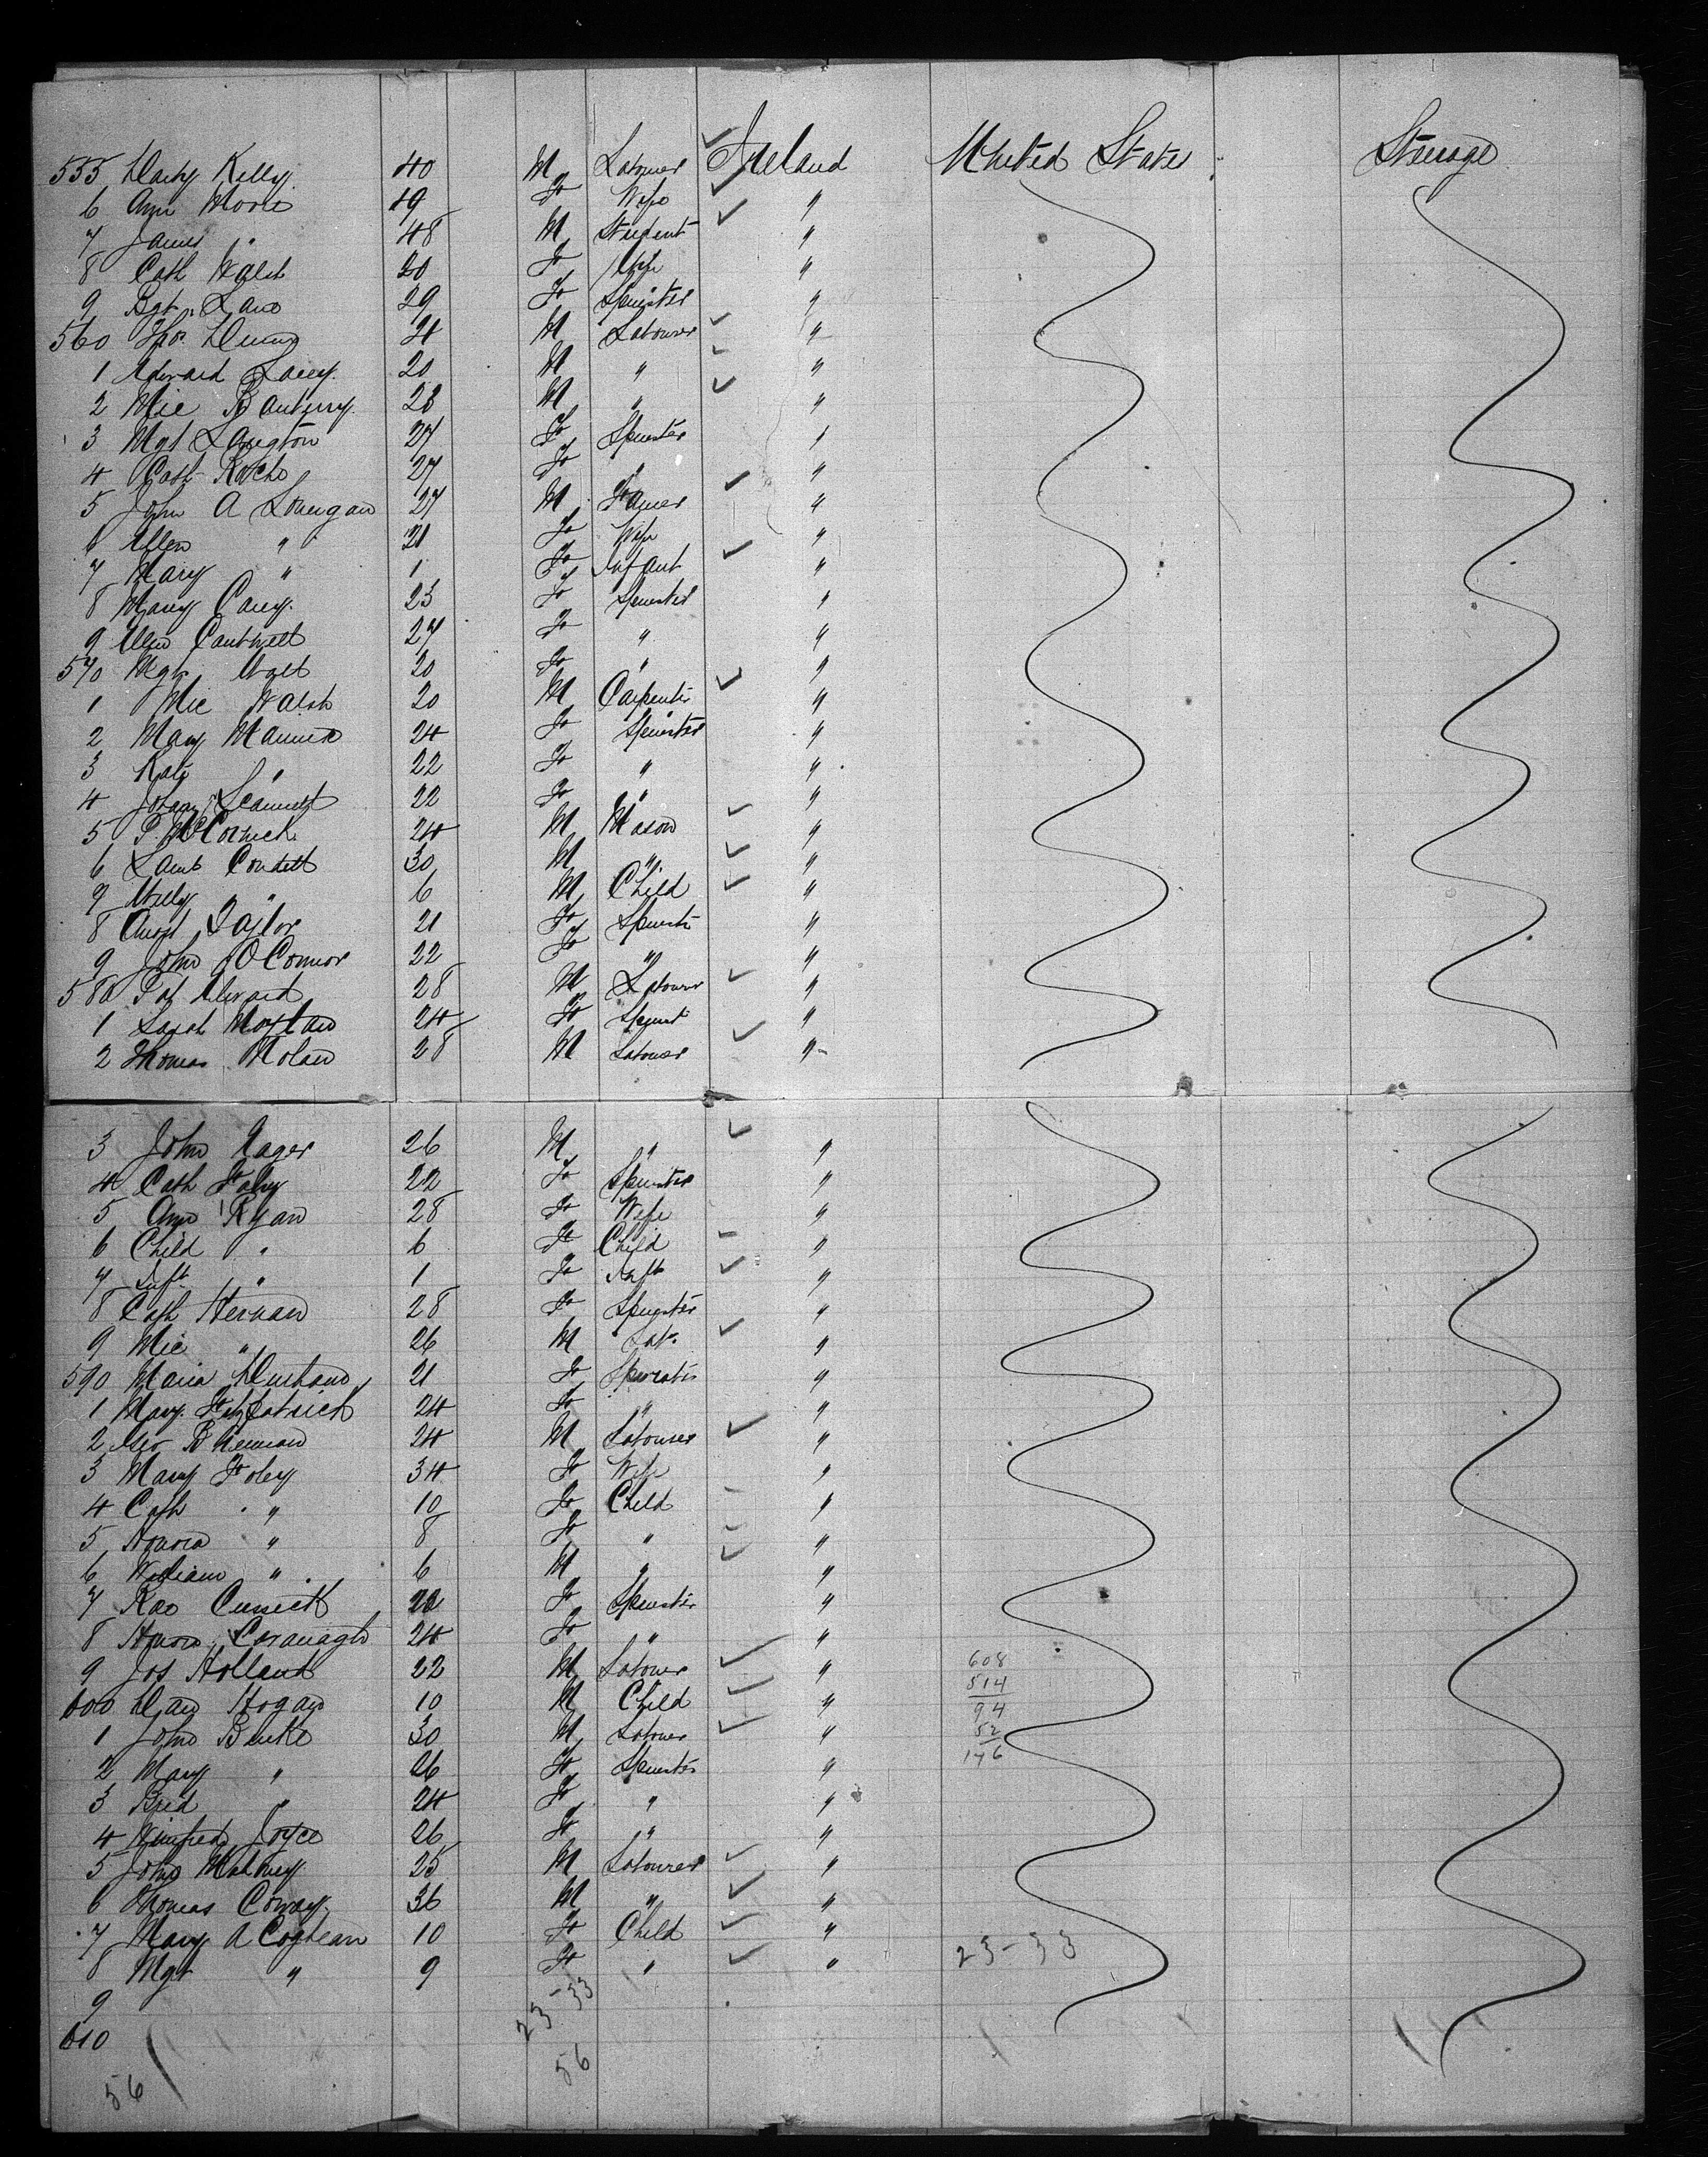 555 Darby Kelly 40 M Labourer Ireland United State Steerage
6 Ann Moore 19 F Wife "
7 James " 48 M Student "
8 Cath Walsh 20 F Wife "
9 Bgt. Lane 29 F Spinster "
560 Thos. 21 M Labourer "
1 Edward Lacey 20 M " "
2 Mic 28 M " "
3 Mgt Langton 27 F Spinster "
4 Cath Roche 27 F " "
5 John A Lonergan 27 M Farmer "
6 Ellen " 21 F Wife "
7 Mary " 1 F Infant "
8 Mary Carey 23 F Spinster "
9 Ellen Cantwell 27 F " "
570 Mgt 20 F " "
1 Mic Walsh 20 M Carpenter "
2 Mary 24 F Spinster "
3 Kate " 22 F " "
4 22 F " "
5 P. McCormick 24 M Mason "
6 30 M " "
7 Willy " 6 M Child "
8 Taylor 21 F Spinster "
9 John O Connor 22 F " "
580 Pat 28 M Labourer "
1 Sarah Moylan 24 F Spinst "
2 Thomas Nolan 28 M Labourer "
3 John Nager 26 M " "
4 Cath Fahy 22 F Spinster "
5 Ann Ryan 28 F Wife "
6 Child " 6 F Child "
7 Inft " 1 F Inft "
8 Cath Hernan 28 F Spinster "
9 Mic " 26 M Lab. "
590 Maria 21 F Spinster "
1 Mary Fitzpatrick 24 F " "
2 24 M Labourer "
3 Mary Foley 34 F Wife "
4 Cath " 10 F Child "
5 Honora " 8 F " "
6 William " 6 M " "
7 Cussick 22 F Spinster "
8 Cavanagh 24 F " "
9 Jos Holland 22 M Labourer " 608
600 Dan Hogan 10 M Child " 514
94
1 John Burke 30 M Labourer " 52
146
2 Mary " 26 F Spinster "
3 Brid " 24 F " "
4 Winifred Joyce 26 F " "
5 John Mahoney 25 M Labourer "
6 Thomas Conway 36 M " "
7 Mary A Coghlan 10 F Child "
8 Mgt " 9 F " " 23-33
9 23-33
610
56 56